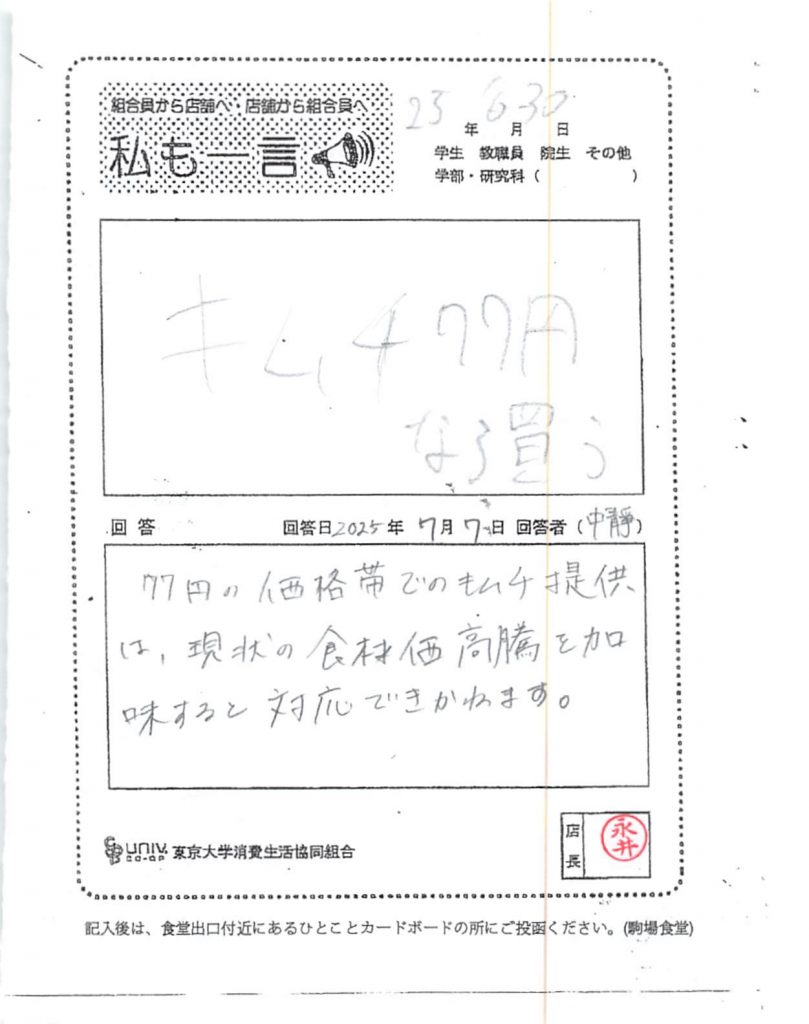 組合員から店舗へ・店舗から組合員へ
私も一言
25 6 30
年 月 日
学生 教職員 院生 その他
学部・研究科( )
キムチ77円
なら買う
回答 回答日2025年 7月 7日 回答者(中静)
77円の価格帯でのキムチ提供
は、現状の食材価高騰を加
味すると対応できかねます。
UNIV. CO-OP 東京大学消費生活協同組合
店長 永井
記入後は、食堂出口付近にあるひとことカードボードの所にご投函ください。(駒場食堂)